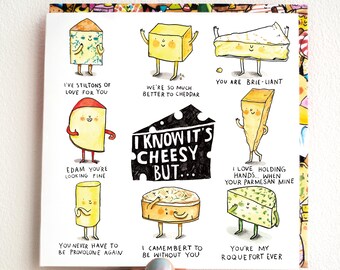 I'VE STILTONS OF
LOVE FOR YOU
WE'RE SO MUCH
BETTER TO CHEDDAR
YOU ARE BRIE-LIANT
EDAM YOU'RE
LOOKING FINE
I KNOW IT'S
CHEESY
BUT...
I LOVE HOLDING
HANDS... WHEN
YOUR PARMESAN MINE
YOU NEVER HAVE TO
BE PROVOLONE AGAIN
I CAMEMBERT TO
BE WITHOUT YOU
YOU'RE MY
ROQUEFORT EVER